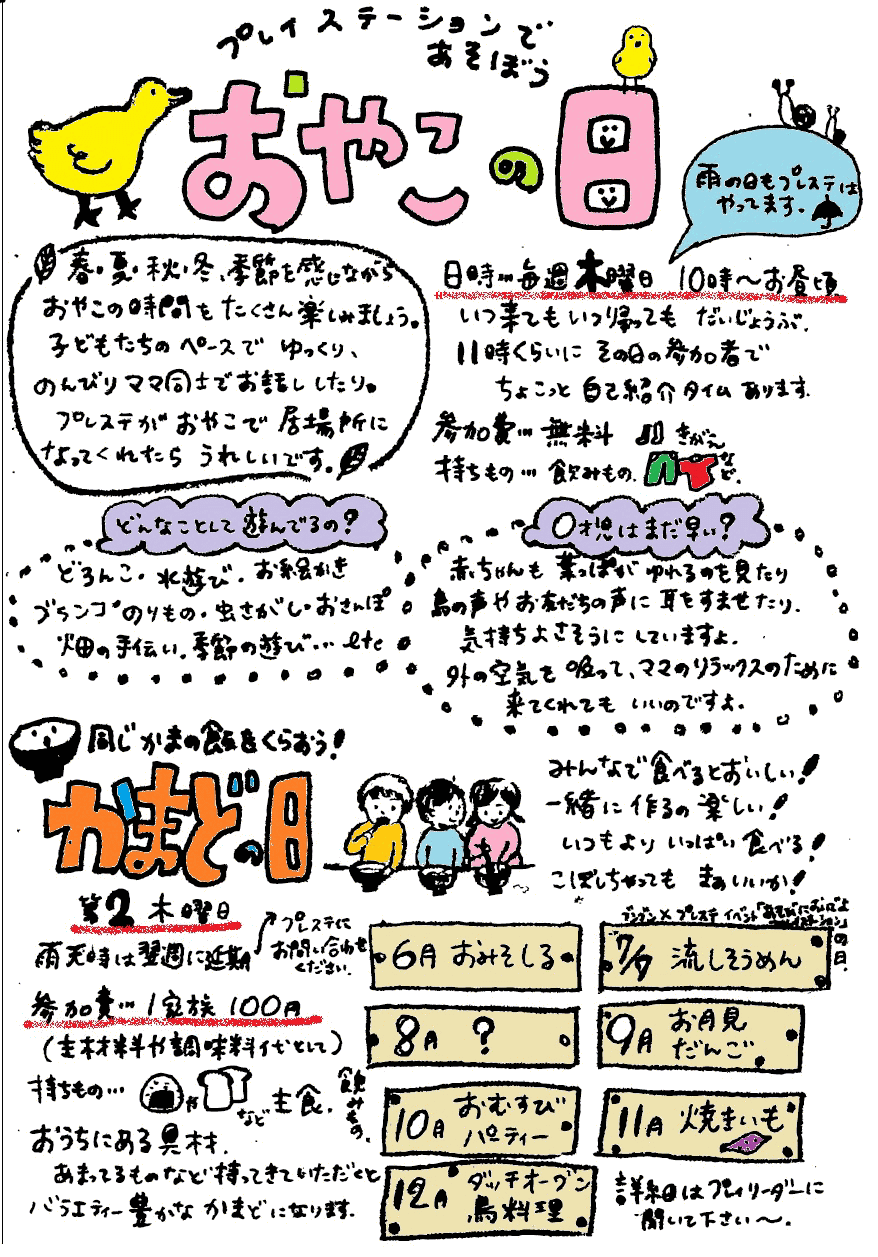 プレイステーションで
あそぼう
おやこの日
雨の日もプレステは
やってます。
春・夏・秋・冬、季節を感じながら
おやこの時間もたくさん楽しみましょう。
子どもたちのペースでゆっくり、
のんびりママ同士でお話ししたり。
プレステがおやこで居場所に
なってくれたらうれしいです。
日時…毎週木曜日 10時〜お昼頃
いつ来てもいつ帰ってもだいじょうぶ。
11時くらいにその日の参加者で
ちょこっと自己紹介タイムあります。
参加費…無料
持ちもの…飲みもの、きがえなど。
どんなことして遊んでるの?
どろんこ・水遊び・お絵かき
ブランコ・のりもの・虫さがし・おさんぽ
畑の手伝い・季節の遊び…etc
0才児はまだ早い?
赤ちゃんも葉っぱがゆれるのを見たり
鳥の声やお友だちの声に耳をすませたり、
気持ちよさそうにしていますよ。
外の空気を吸って、ママのリラックスのために
来てくれてもいいのですよ。
同じかまの飯をくらおう!
かまどの日
みんなで食べるとおいしい!
一緒に作るの楽しい!
いつもよりいっぱい食べる!
こぼしちゃってもまぁいいか!
第2木曜日
雨天時は翌週に延期
プレステに
お問い合わせ
ください。
参加費…1家族100円
(主材料や調味料代として)
持ちもの…や など主食、飲みもの、
おうちにある具材。
あまってるものなど持ってきていただくと
バラエティー豊かなかまどになります。
6月 おみそしる
7/7 流しそうめん
8月 ?
9月 お月見だんご
10月 おむすびパーティー
11月 焼きいも
12月 ダッチオーブン鳥料理
詳細はプレイリーダーに
聞いて下さい〜。